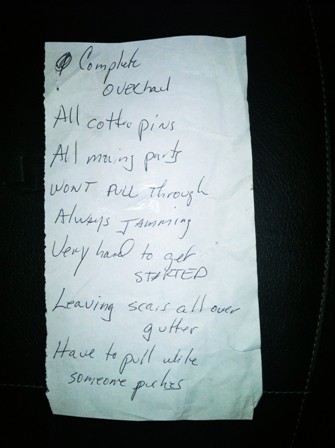 Complete
overhaul
All cotter pins
All moving parts
WONT PULL Through
Always JAMMING
Very hard to get
STARTED
Leaving scars all over
gutter
Have to pull while
someone pushes